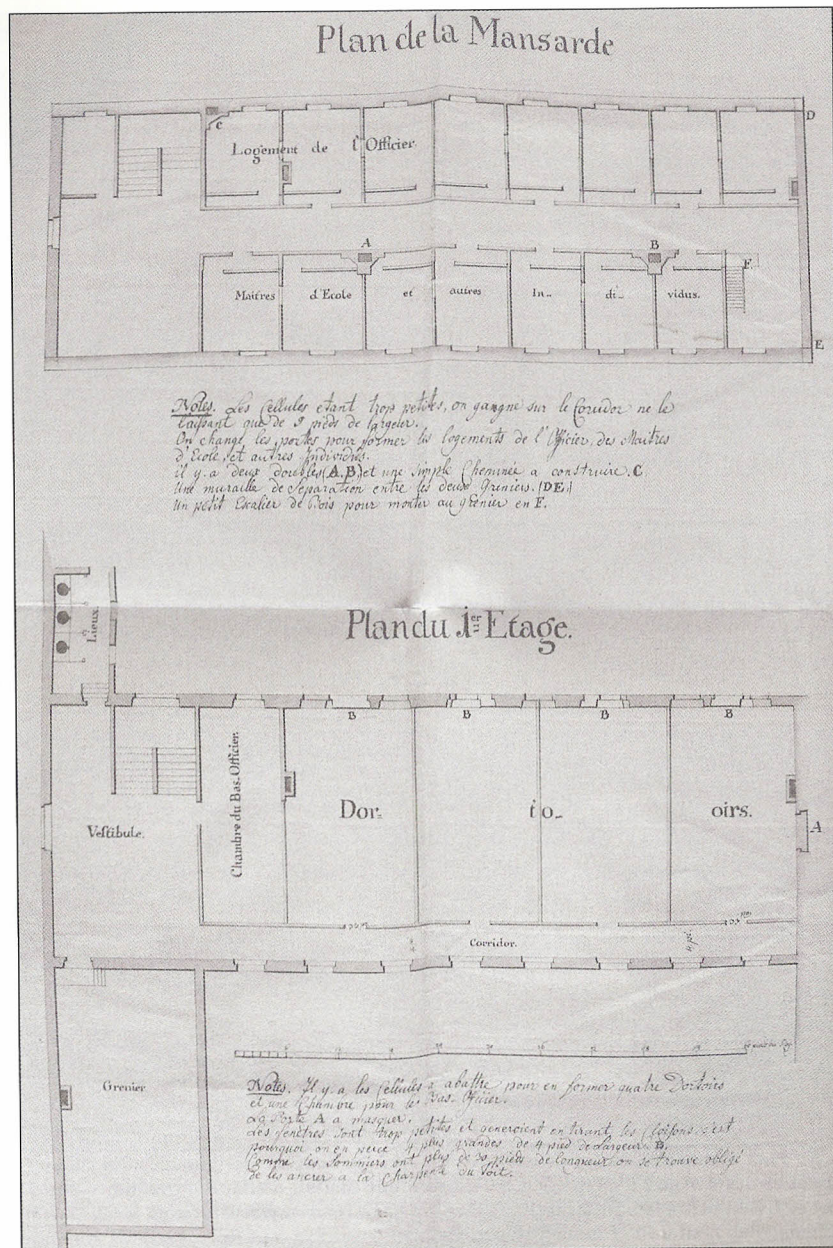 Plan de la Mansarde
C
D
Logement de l'Officier.
A
B
F.
Maitres d'Ecole et autres In- di- vidus.
E
Notes. Les Cellules etant trop petites, on gangne sur le Corridor ne le
laissant que de 9 pieds de largeur.
On change les portes pour former les logements de l'Officier, des Maitres
d'Ecole, et autres Individus.
il y a deux doubles (A.B) et une simple Cheminée a construire. C
Une muraille de Separation entre les deux Greniers. (DE.)
Un petit Escalier de Bois pour monter au grenier en F.
Lieux.
Plan du 1er Etage.
B B B B
Chambre du Bas-Officier.
Dor- to- oirs.
Vestibule.
A
Corridor.
Grenier
Notes. Il y a les Cellules a abattre pour en former quatre Dortoirs
et une Chambre pour le Bas-Officier.
La Porte A a masquer.
Les fenetres sont trop petites et generoient en tirant les Cloisons c'est
pourquoi on en perce 4 plus grandes de 4 pied de Largeur B.
Comme les Sommiers ont plus de 30 pieds de longueur on se trouve obligé
de les ancrer a la Charpente du Toit.